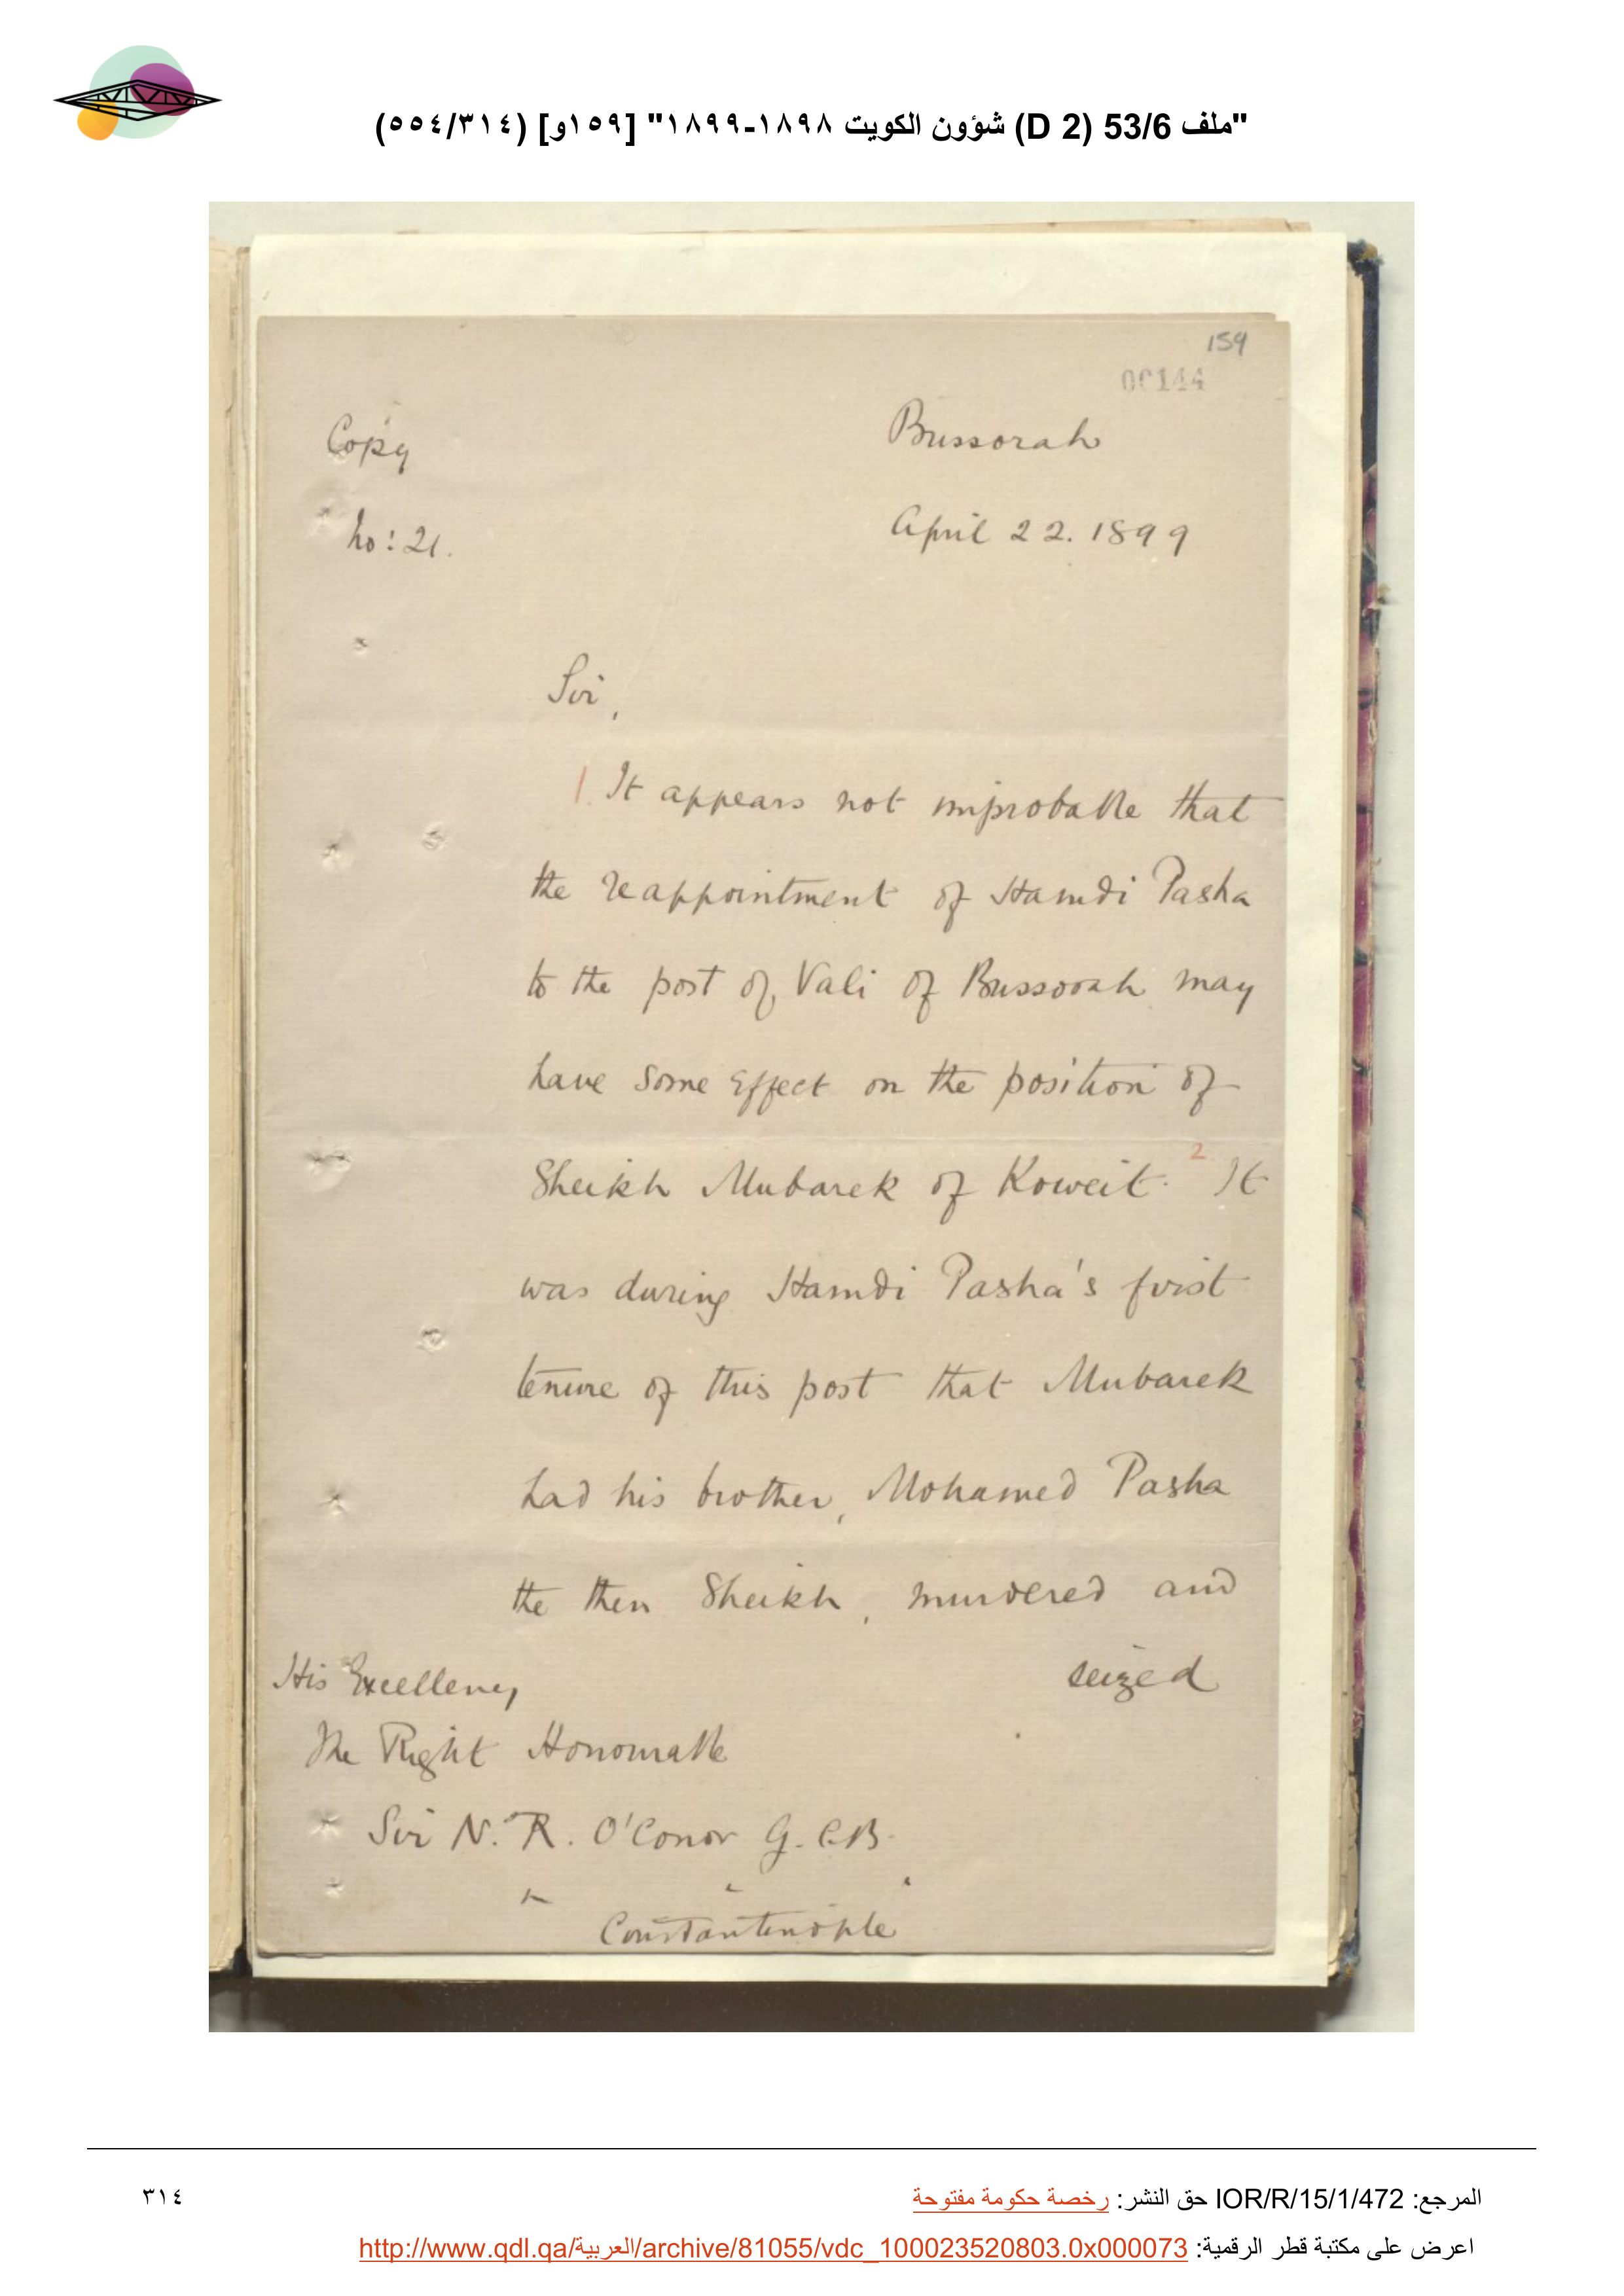 "ملف 53/6 (D 2) شؤون الكويت ١٨٩٨-١٨٩٩" [١٥٩و] (٥٥٤/٣١٤)
159
00144
Copy
Bussorah
No: 21.
April 22. 1899
Sir,
1. It appears not improbable that
the reappointment of Hamdi Pasha
to the post of Vali of Bussorah may
have some effect on the position of
Sheikh Mubarek of Koweit. 2 It
was during Hamdi Pasha's first
tenure of this post that Mubarek
had his brother, Mohamed Pasha
the then Sheikh, murdered and
seized
His Excellency
The Right Honourable
Sir N. R. O'Conor G.C.B.
Constantinople
المرجع: IOR/R/15/1/472 حق النشر: رخصة حكومة مفتوحة
٣١٤
اعرض على مكتبة قطر الرقمية: http://www.qdl.qa/العربية/archive/81055/vdc_100023520803.0x000073